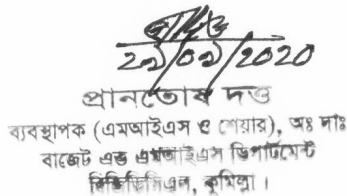 ২১/০১/2020
প্রানতোষ দত্ত
ব্যবস্থাপক (এমআইএস ও শেয়ার), অঃ দাঃ
বাজেট এন্ড এমআইএস ডিপার্টমেন্ট
কুমিল্লা।